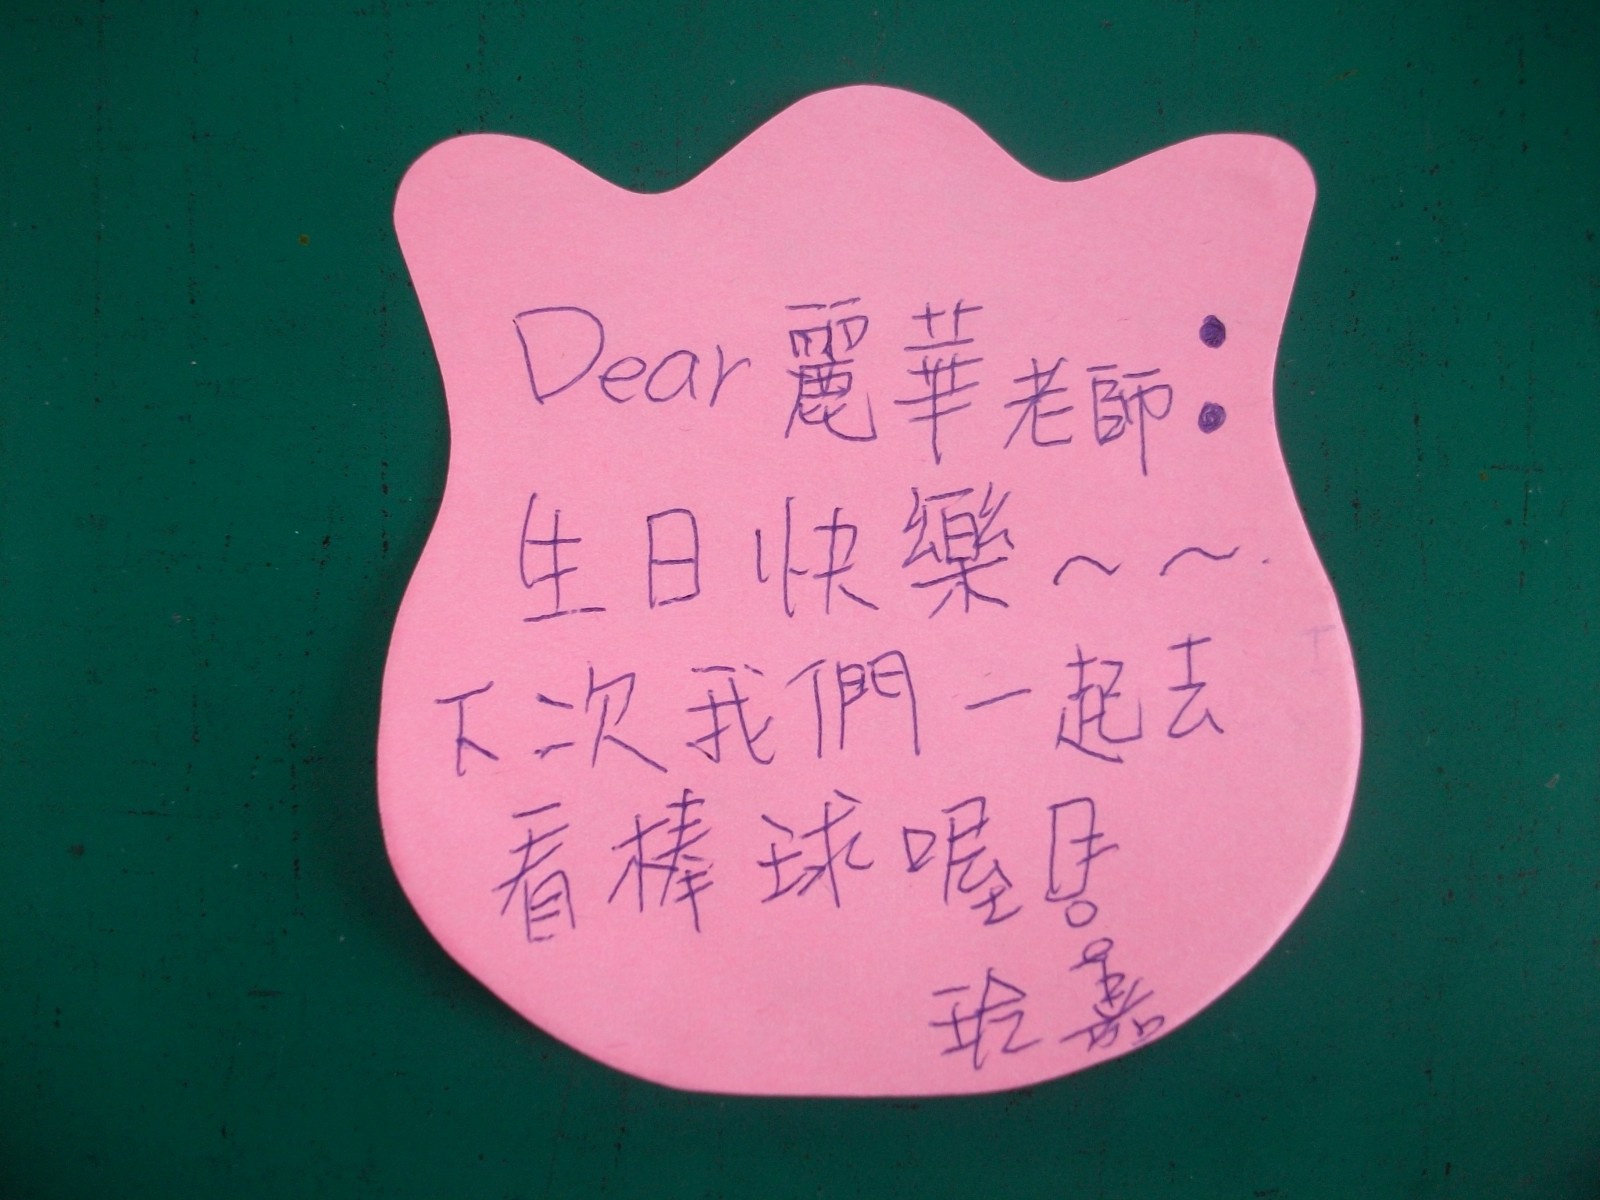 Dear 麗華老師：
生日快樂～～
下次我們一起去
看棒球喔！
玲嘉